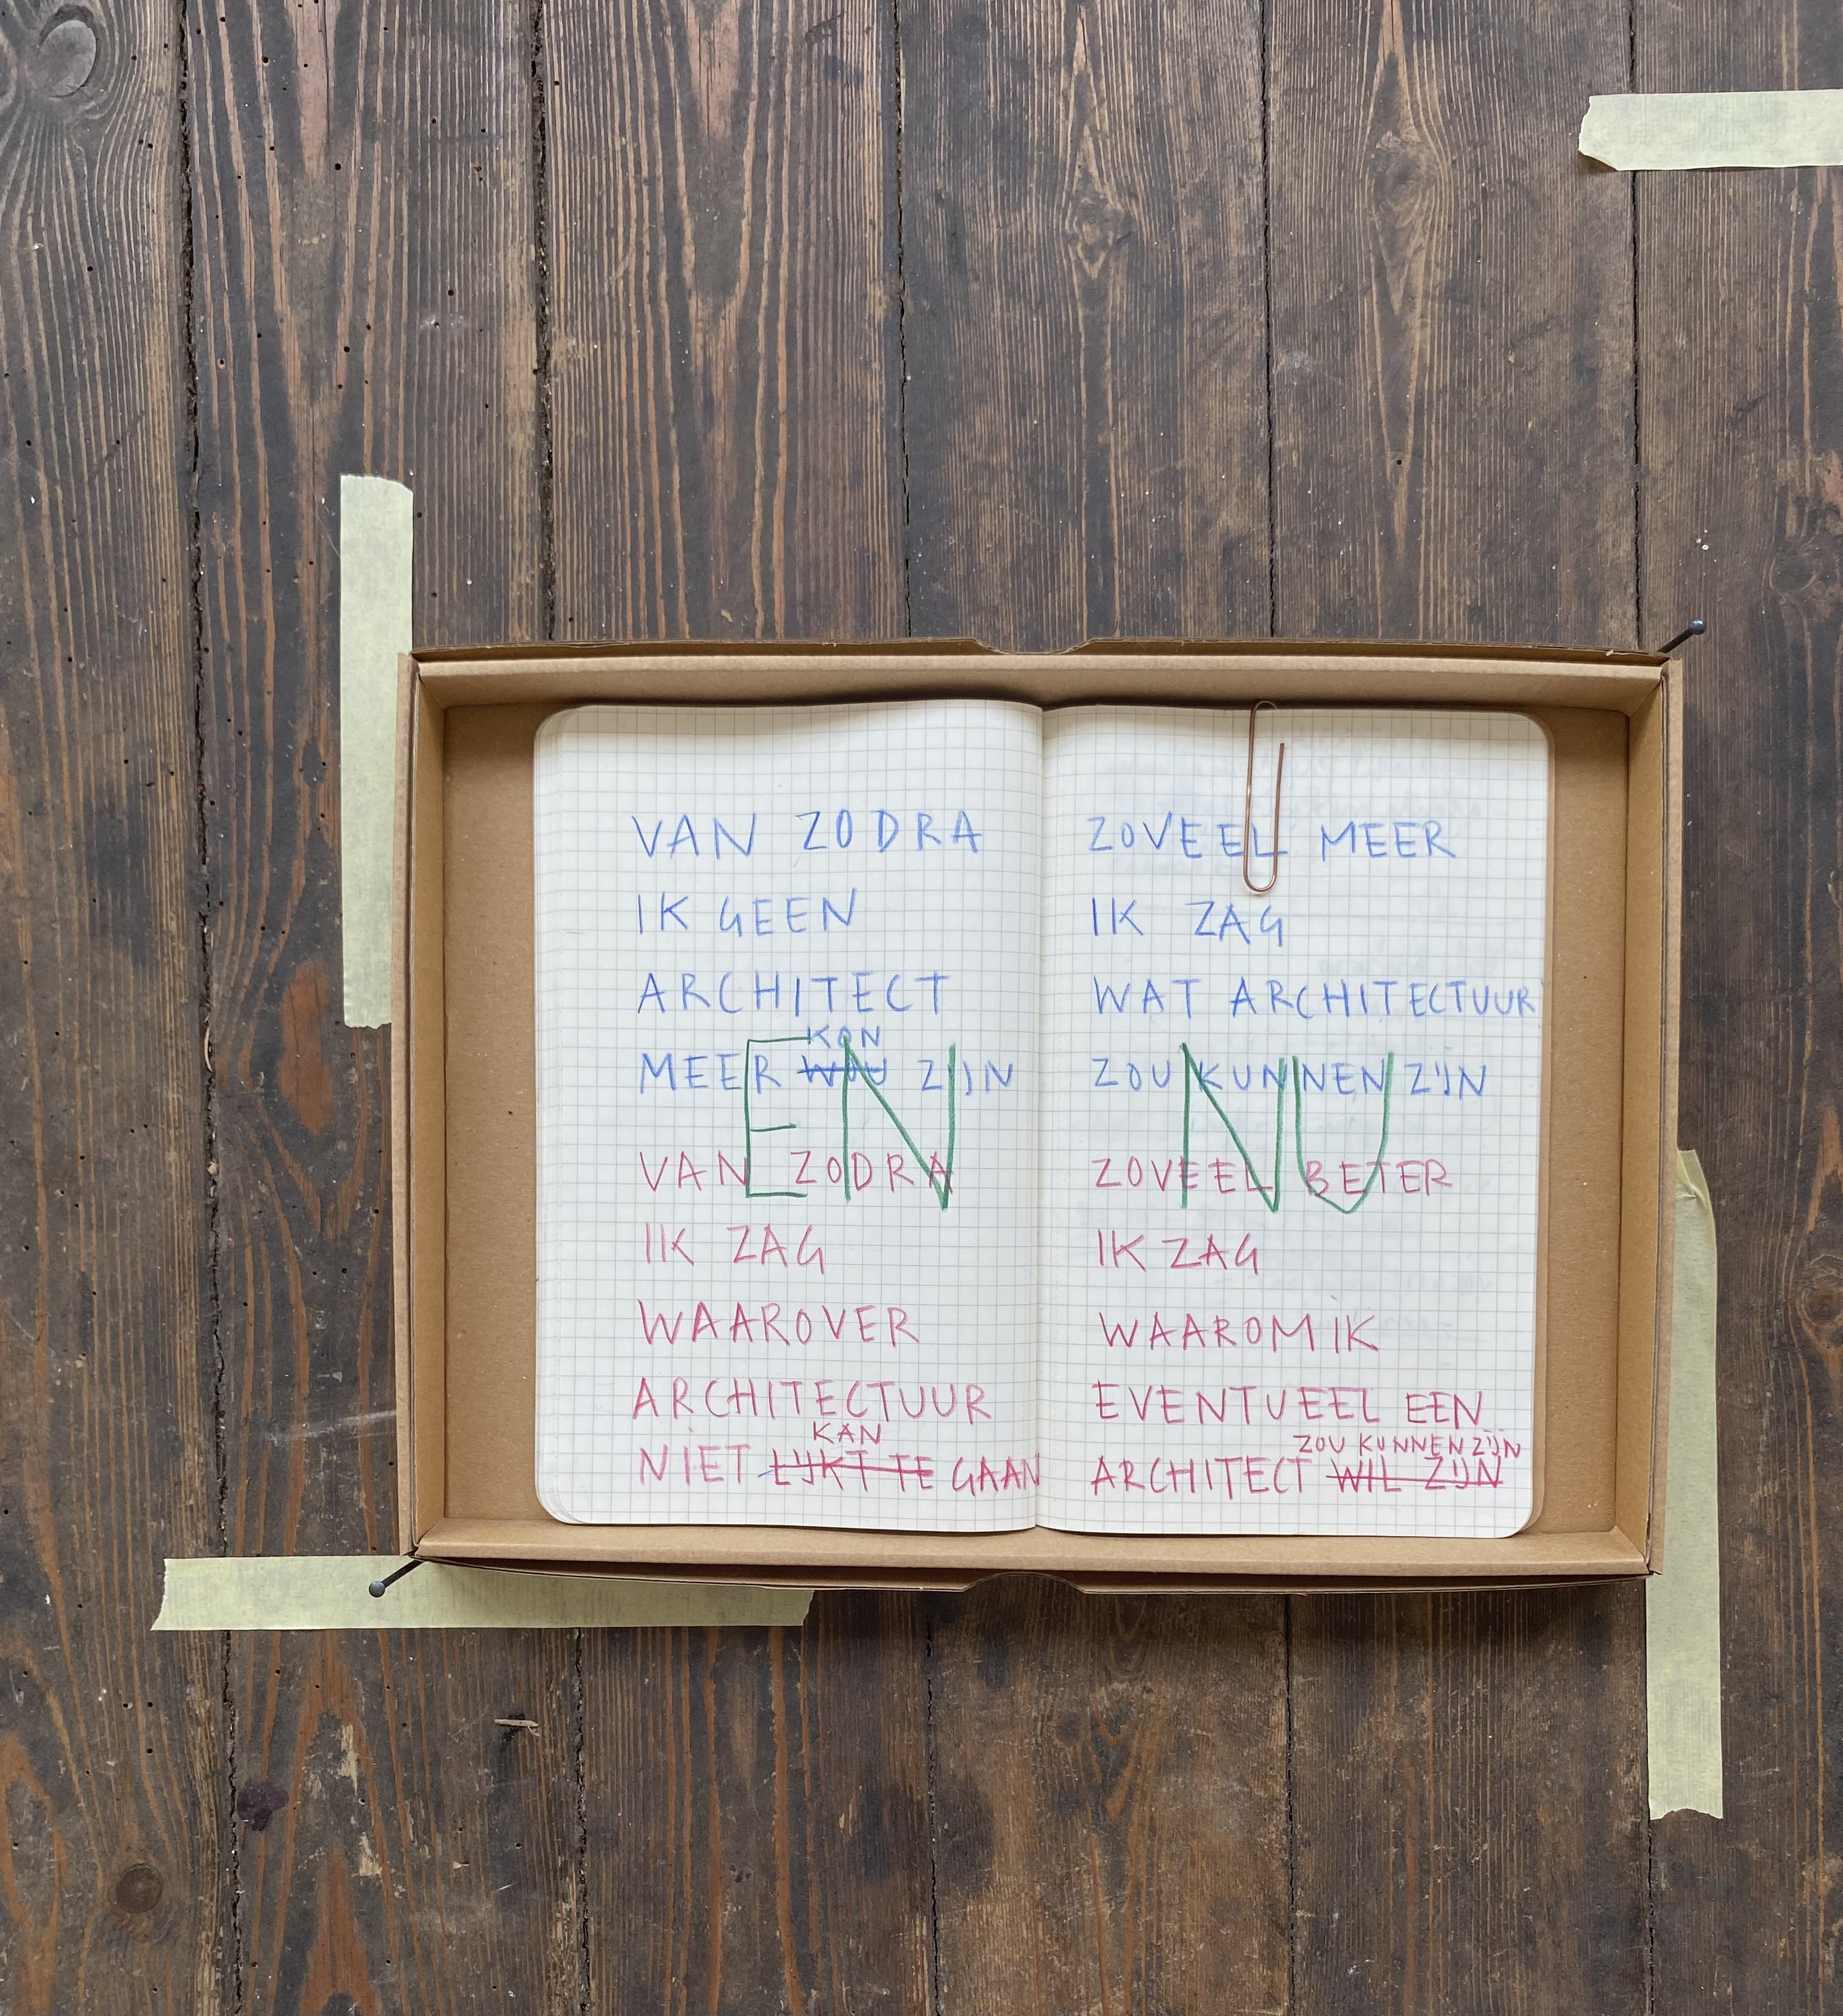 VAN ZODRA
IK GEEN
ARCHITECT
KON
MEER WOU ZIJN
EN
VAN ZODRA
IK ZAG
WAAROVER
ARCHITECTUUR
KAN
NIET LIJKT TE GAAN
ZOVEEL MEER
IK ZAG
WAT ARCHITECTUUR
ZOU KUNNEN ZIJN
NU
ZOVEEL BETER
IK ZAG
WAAROM IK
EVENTUEEL EEN
ZOU KUNNEN ZIJN
ARCHITECT WIL ZIJN